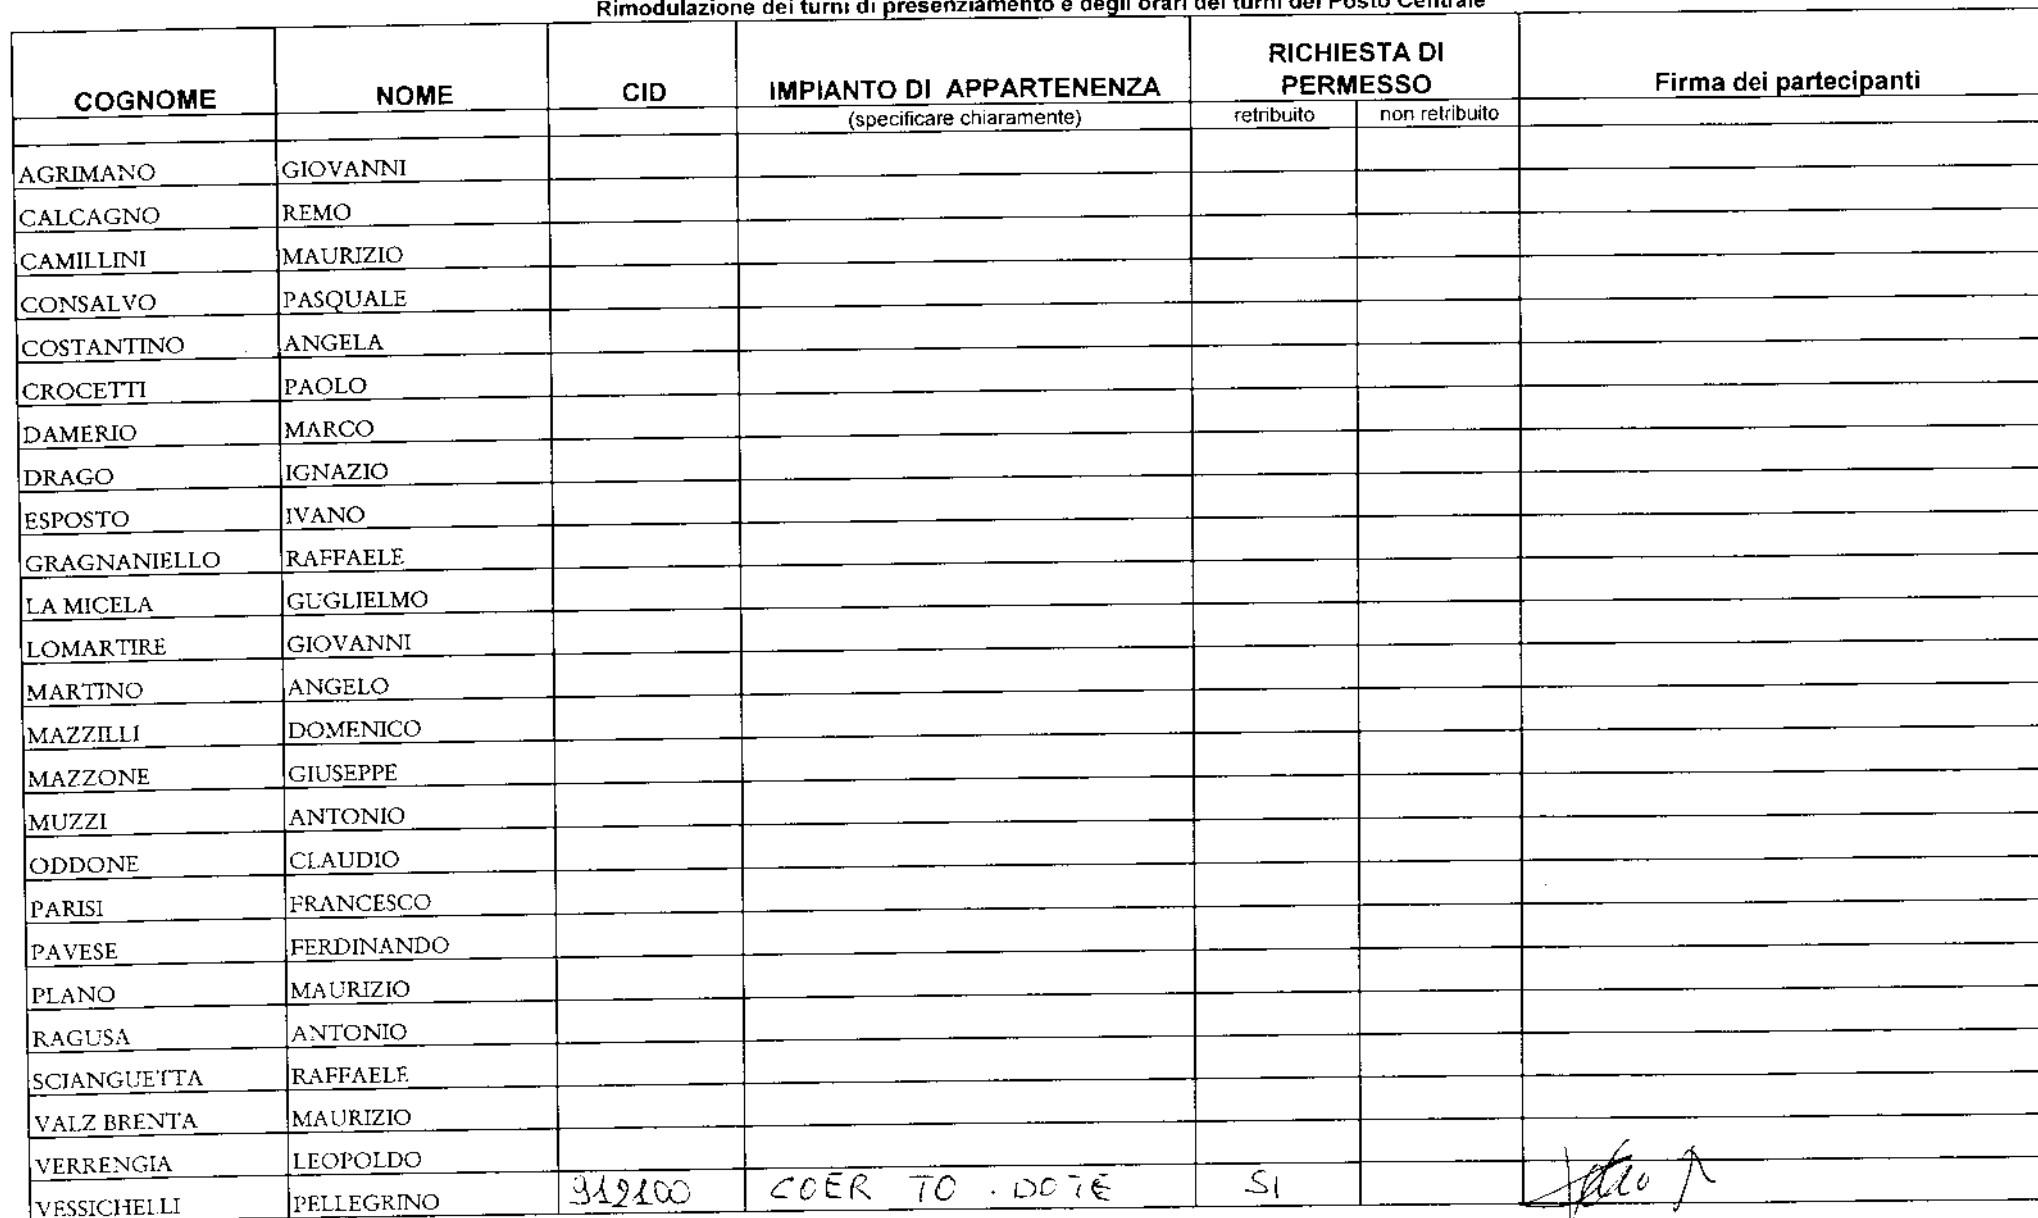 Rimodulazione dei turni di presenziamento e degli orari dei turni del Posto Centrale
COGNOME NOME CID IMPIANTO DI APPARTENENZA RICHIESTA DI PERMESSO Firma dei partecipanti
(specificare chiaramente) retribuito non retribuito
AGRIMANO GIOVANNI
CALCAGNO REMO
CAMILLINI MAURIZIO
CONSALVO PASQUALE
COSTANTINO ANGELA
CROCETTI PAOLO
DAMERIO MARCO
DRAGO IGNAZIO
ESPOSTO IVANO
GRAGNANIELLO RAFFAELE
LA MICELA GUGLIELMO
LOMARTIRE GIOVANNI
MARTINO ANGELO
MAZZILLI DOMENICO
MAZZONE GIUSEPPE
MUZZI ANTONIO
ODDONE CLAUDIO
PARISI FRANCESCO
PAVESE FERDINANDO
PLANO MAURIZIO
RAGUSA ANTONIO
SCIANGUETTA RAFFAELE
VALZ BRENTA MAURIZIO
VERRENGIA LEOPOLDO
VESSICHELLI PELLEGRINO 912100 COER TO . DOTE SI